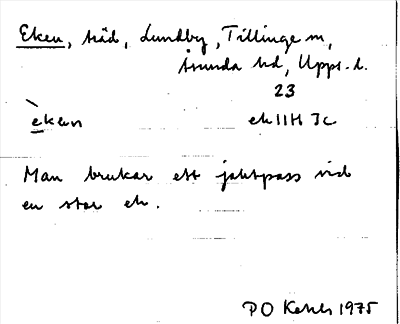 Eken, träd, Lundby, Tillinge sn,
Åsunda hd, Upps. l.
23
èken ek IIH Ic
Man brukar ett jaktpass vid
en stor ek.
PO 1975